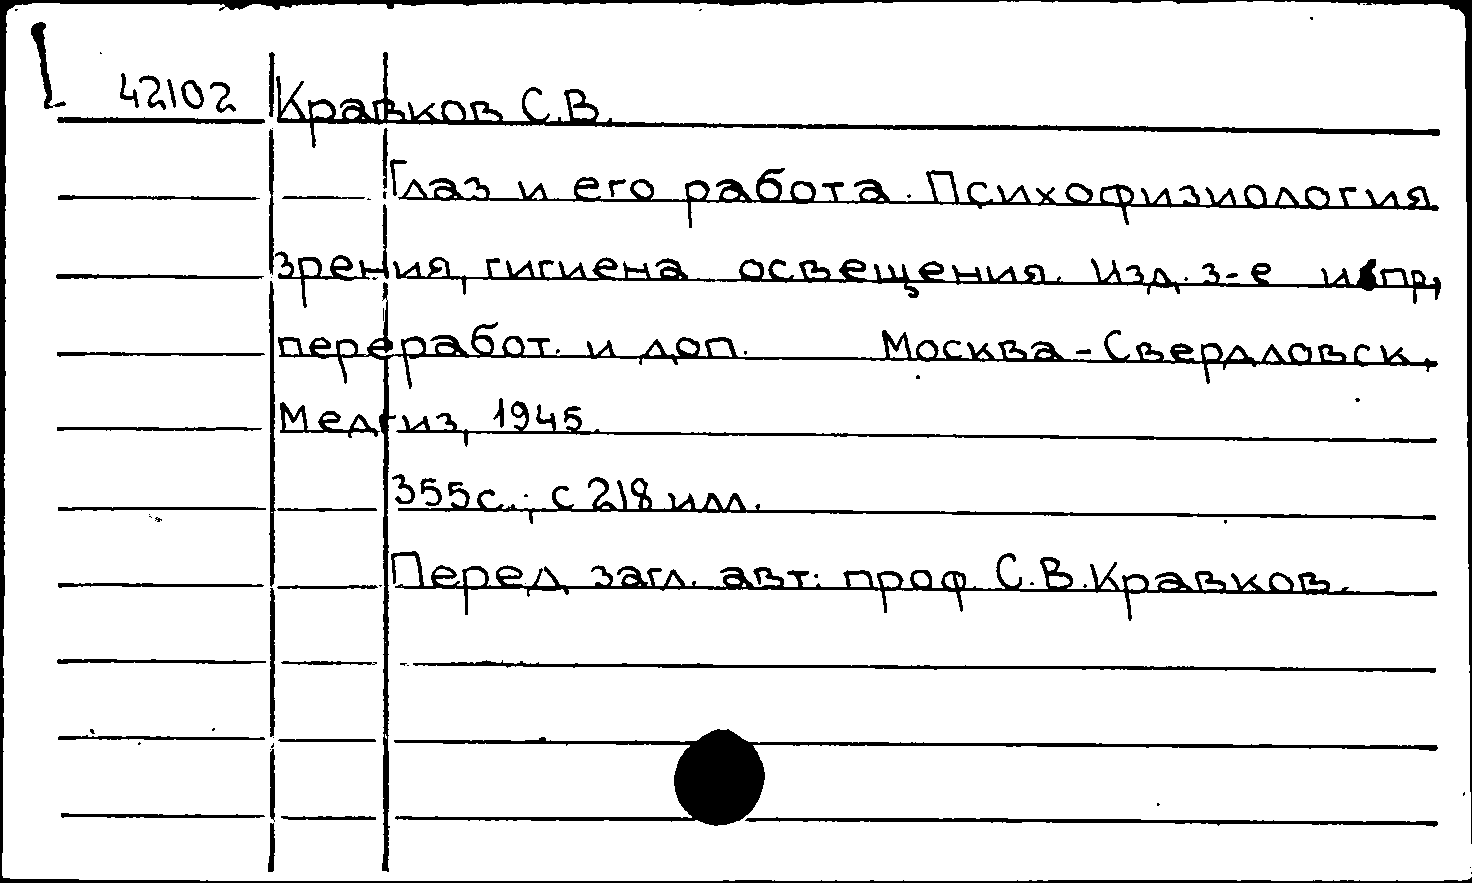 42102 Кравков С.В.
Глаз и его работа. Психофизиология
зрения, гигиена освещения. Изд. 3-е испр.,
переработ. и доп. Москва-Свердловск,
Медгиз, 1945.
355с.; с 218 илл.
Перед загл. авт: проф. С.В.Кравков.